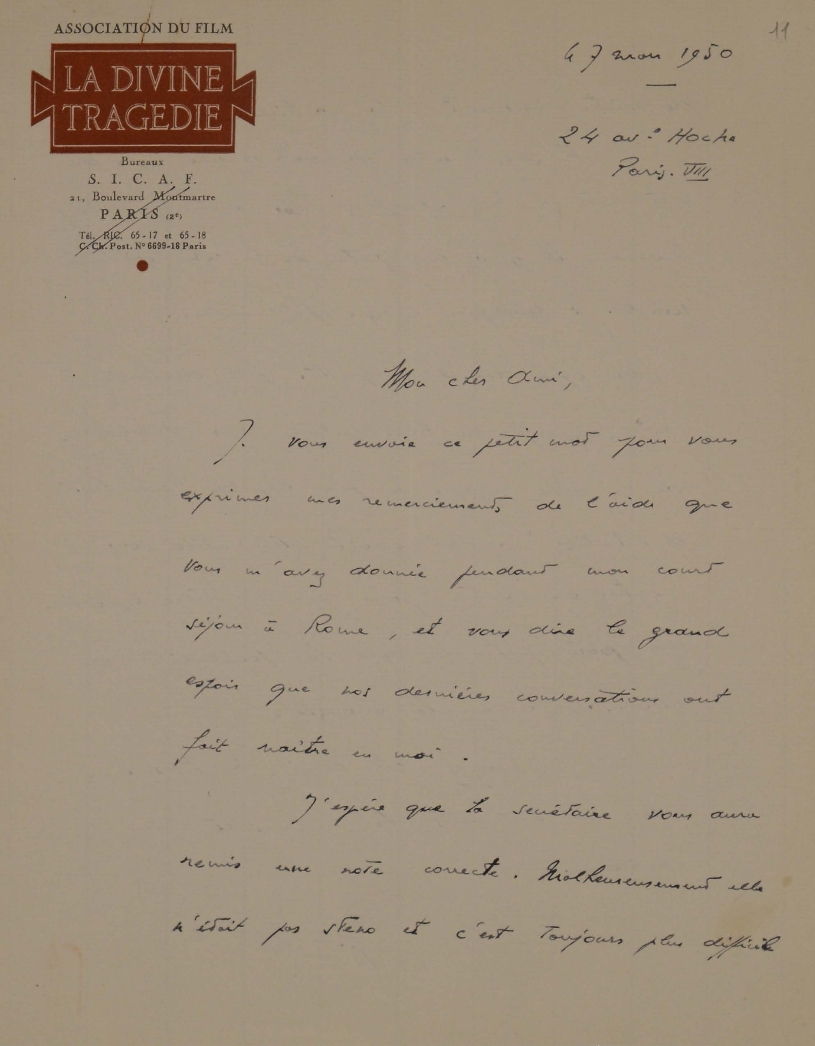 11
ASSOCIATION DU FILM
LA DIVINE
TRAGEDIE
Bureaux
S. I. C. A. F.
21, Boulevard Montmartre
PARIS (2e)
Tél. RIC. 65-17 et 65-18
C. Ch. Post. No 6699-18 Paris
le 7 mars 1950
24 av.e Hoche
Paris. VIII
Mon cher Ami,
Je vous envoie ce petit mot pour vous
exprimer mes remerciements de l'aide que
vous m'avez donnée pendant mon court
séjour à Rome, et vous dire le grand
espoir que nos dernières conversations ont
fait naître en moi.
J'espère que la secrétaire vous aura
remis une note correcte. Malheureusement elle
n'était pas steno et c'est toujours plus difficile